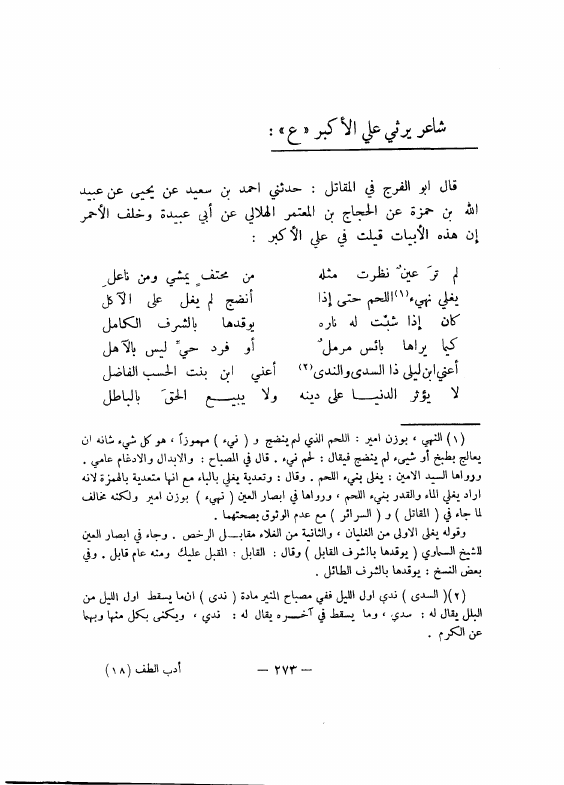 شاعر يرثي علي الأكبر « ع » :
قال ابو الفرج في المقاتل : حدثني احمد بن سعيد عن يحيى عن عبيد
الله بن حمزة عن الحجاج بن المعتمر الهلالي عن أبي عبيدة وخلف الأحمر
إن هذه الأبيات قيلت في علي الأكبر :
لم ترَ عينٌ نظرت مثله من محتفٍ يمشي ومن ناعلِ
يغلي نهيء(١) اللحم حتى إذا أنضج لم يغل على الآكل
كان إذا شبّت له ناره يوقدها بالشرف الكامل
كيما يراها بائس مرملٌ أو فرد حيٍّ ليس بالآهل
أعني ابن ليلى ذا السدى والندى(٢) أعني ابن بنت الحسب الفاضل
لا يؤثر الدنيا على دينه ولا يبيع الحقَ بالباطل
(١) النهي ، بوزن امير : اللحم الذي لم ينضج و ( نيء ) مهموزاً ، هو كل شيء شانه ان
يعالج بطبخ أو شيىء لم ينضج فيقال : لحم نيء . قال في المصباح : والابدال والادغام عامي .
ورواها السيد الامين : يغلى بنيء اللحم . وقال : وتعدية يغلي بالباء مع انها متعدية بالهمزة لانه
اراد يغلي الماء والقدر بنيء اللحم ، ورواها في ابصار العين ( نهيء ) بوزن امير ولكنه مخالف
لما جاء في ( المقاتل ) و ( السرائر ) مع عدم الوثوق بصحتهما .
وقوله يغلى الاولى من الغليان ، والثانية من الغلاء مقابل الرخص . وجاء في ابصار العين
للشيخ السماوي ( يوقدها بالشرف القابل ) وقال : القابل : المقبل عليك ومنه عام قابل . وفي
بعض النسخ : يوقدها بالشرف الطائل .
(٢)( السدى ) ندي اول الليل ففي مصباح المنير مادة ( ندى ) ان ما يسقط اول الليل من
البلل يقال له : سدي ، وما يسقط في آخره يقال له : ندي ، ويكنى بكل منها وبهما
عن الكرم .
— ٢٧٣ — أدب الطف (١٨)